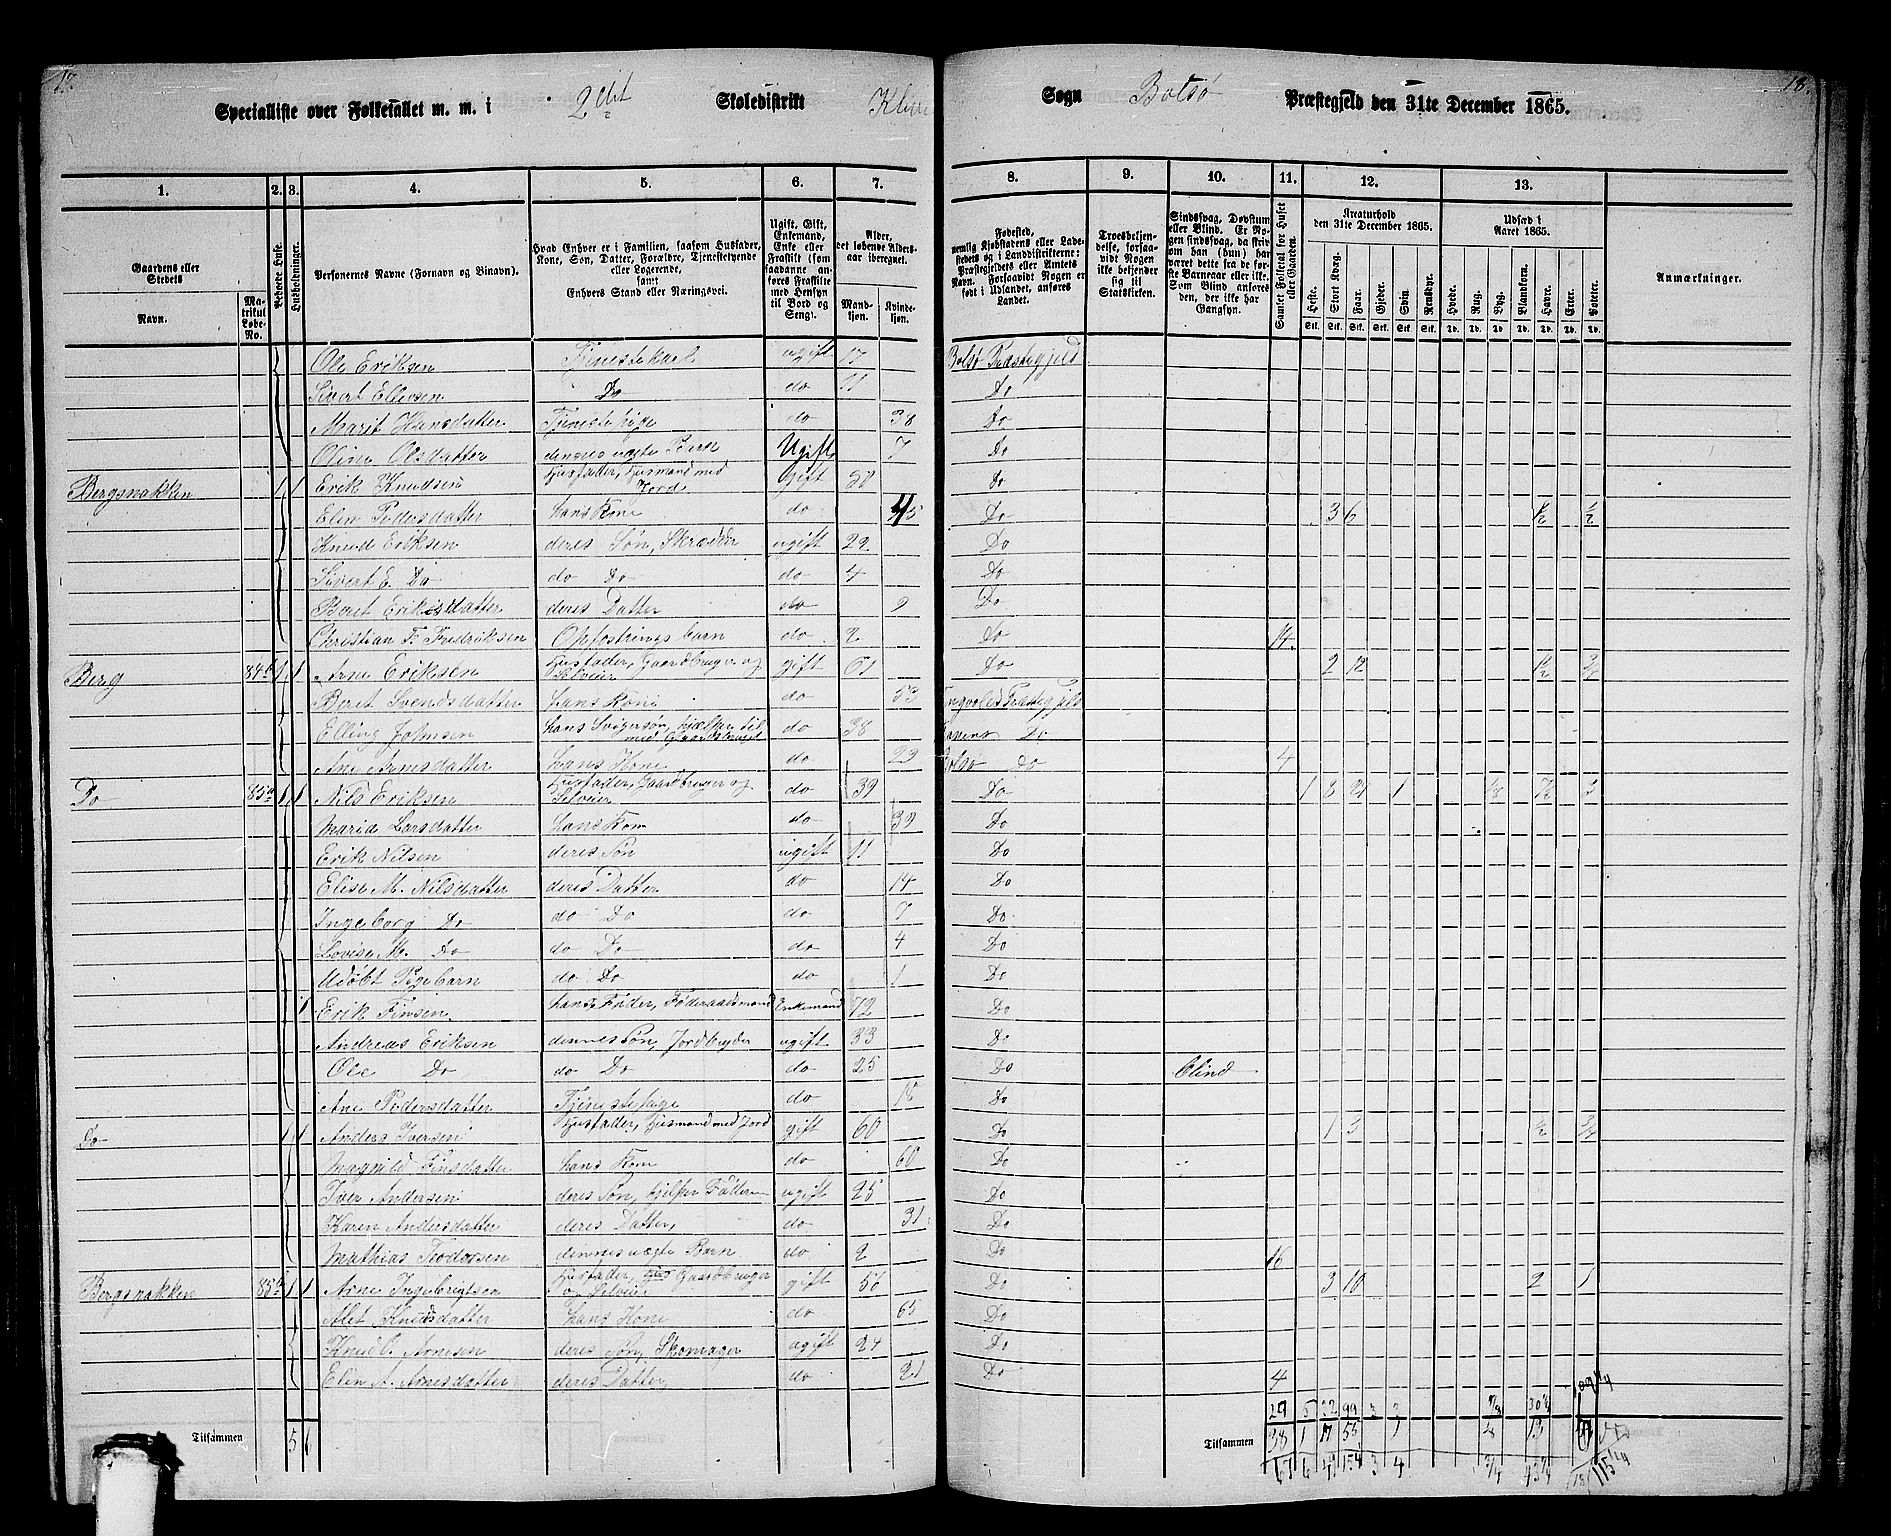 17.
18.
Specialliste over Folketallet m. m. i 2det Skoledistrikt Sogn Bolsø Præstegjeld den 31te December 1865.
1. 2. 3. 4. 5. 6. 7. 8. 9. 10. 11. 12. 13.
Gaardens eller Stedets Navn. Matrikul Løbe-No. Beboede Huse. Husholdninger.
Personernes Navne (Fornavn og Binavn).
Hvad Enhver er i Familien, saasom Husfader, Kone, Søn, Datter, Forældre, Tjenestetyende eller Logerende, samt Enhvers Stand eller Næringsvei.
Ugift, Gift, Enkemand, Enke eller Fraskilt (som saadanne anføres Fraskilte med Hensyn til Bord og Seng).
Alder, det løbende Aldersaar iberegnet. Mandkjøn. Kvindekjøn.
Fødested, nemlig Kjøbstadens eller Ladestedets og i Landdistrikterne: Præstegjeldets eller Amtets Navn. Forsaavidt Nogen er født i Udlandet, anføres Landet.
Troesbekjendelse, forsaavidt Nogen ikke bekjender sig til Statskirken.
Sindssvag, Døvstum eller Blind. Er Nogen sindssvag, da skrives om han (hun) har været dette fra de første Barneaar eller ikke. Som Blind anføres den, der ikke har Gangsyn.
Samlet Folketal for Huset eller Gaarden.
Kreaturhold den 31te December 1865. Heste. Stort Kvæg. Faar. Gjeder. Svin. Rensdyr.
Udsæd i Aaret 1865. Hvede. Rug. Byg. Blandkorn. Havre. Erter. Poteter.
Anmærkninger.
Ole Eriksen Tjenestekarl ugift 17 Bolsø Præstegjeld
Sivert Ellevsen Do do 11 Do
Marit Hansdatter Tjenestepige do 38 Do
Oline Olsdatter dennes uægte Barn Ugift 7 Do
Bergsnakken 1 1 Erik Knudsen Husfader, Husmand med Jord Gift 50 Do
Elen Pedersdatter hans Kone do 45 Do 3 6 1/2 1/2
Knud Eriksen deres Søn, Skrædder ugift 22 Do
Sivert E. Do do Do do 4 Do
Beret Eriksdatter deres Datter do 9 Do
Christian F. Fredriksen Opfostringsbarn do 2 Do
Berg 1 1 Arne Eriksen Husfader, Gaardbruger og Selveier gift 61 Do 2 12
Beret Svendsdatter hans Kone do 53 Tingvold Præstegjeld
Elling Johnsen hans Svigersøn, hjælper til med Gaardsbruget do 38 Do
Ane Arnesdatter hans Kone do 23 Bolsø Do 4
Do 85a 1 1 Nils Eriksen Husfader, Gaardbruger og Selveier do 39 Do 1 8 24 1 1/8 3
Marie Larsdatter hans Kone do 39 Do
Erik Nilsen deres Søn ugift 11 Do
Elise M. Nilsdatter deres Datter do 14 Do
Ingeborg Do do Do do 7 Do
Lovise M. Do do Do do 4 Do
Udøbt Pigebarn do Do do 1 Do
1 Erik Finsen hans Fader, Føderaadsmand Enkemand 72 Do
Andreas Eriksen dennes Søn, Jordbryder ugift 33 Do
Ole Do do Do do 25 Do blind
Ane Pedersdatter Tjenestepige do 18 Do
Do 1 1 Anders Iversen Husfader, Husmand med Jord gift 60 Do 1 3 1/2 3/4
Magnild Finsdatter hans Kone do 60 Do
Iver Andersen deres Søn, hjelper Faderen ugift 25 Do
Karen Andersdatter deres Datter, do 31 Do
Mathias Teodorsen dennes uægte Barn do 2 Do 16
Bergsnakken 1 1 Arne Ingebrigtsen Husfader, Gaardbruger og Selveier gift 56 Do 3 10 2 1
Alet Knudsdatter hans Kone do 65 Do
Knud O. Arnesen deres Søn, Skomager ugift 24 Do
Elen A. Arnesdatter deres Datter do 21 Do 4
29 5 32 99 3 3 30 3/4
Tilsammen 5 6 Tilsammen 38 1 17 55 1 13
67 6 49 154 3 4 43 3/4 115 1/4